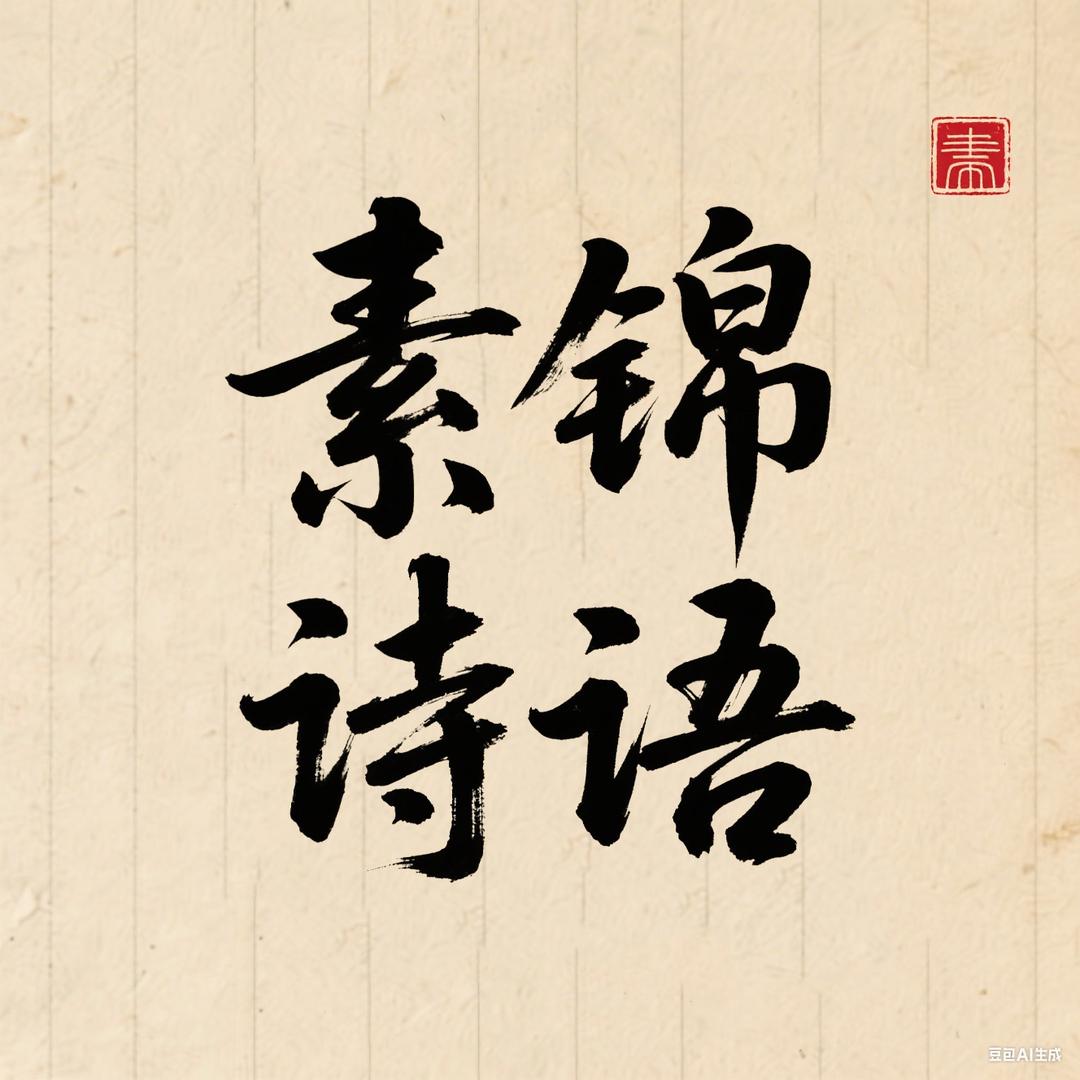 素锦
诗语
豆包AI生成